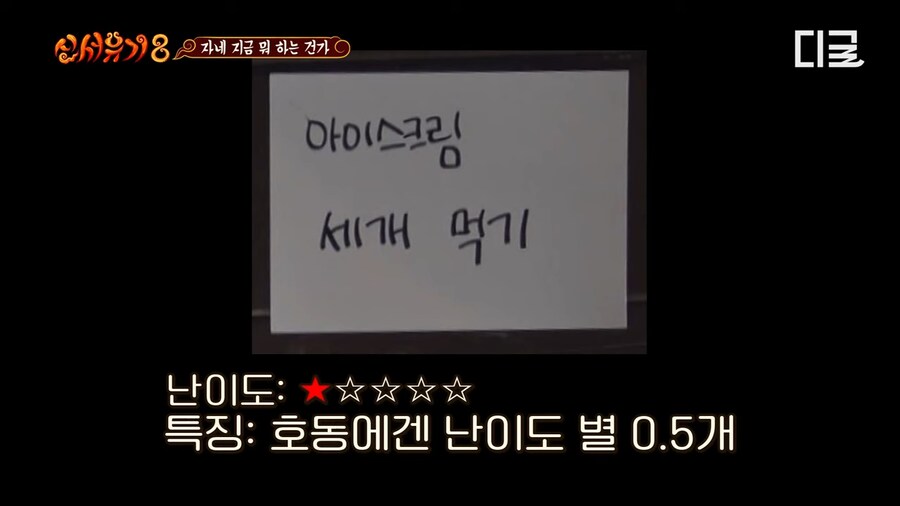 신서유기8
자네 지금 뭐 하는 건가
디글
아이스크림
세개 먹기
난이도: ★☆☆☆☆
특징: 호동에겐 난이도 별 0.5개